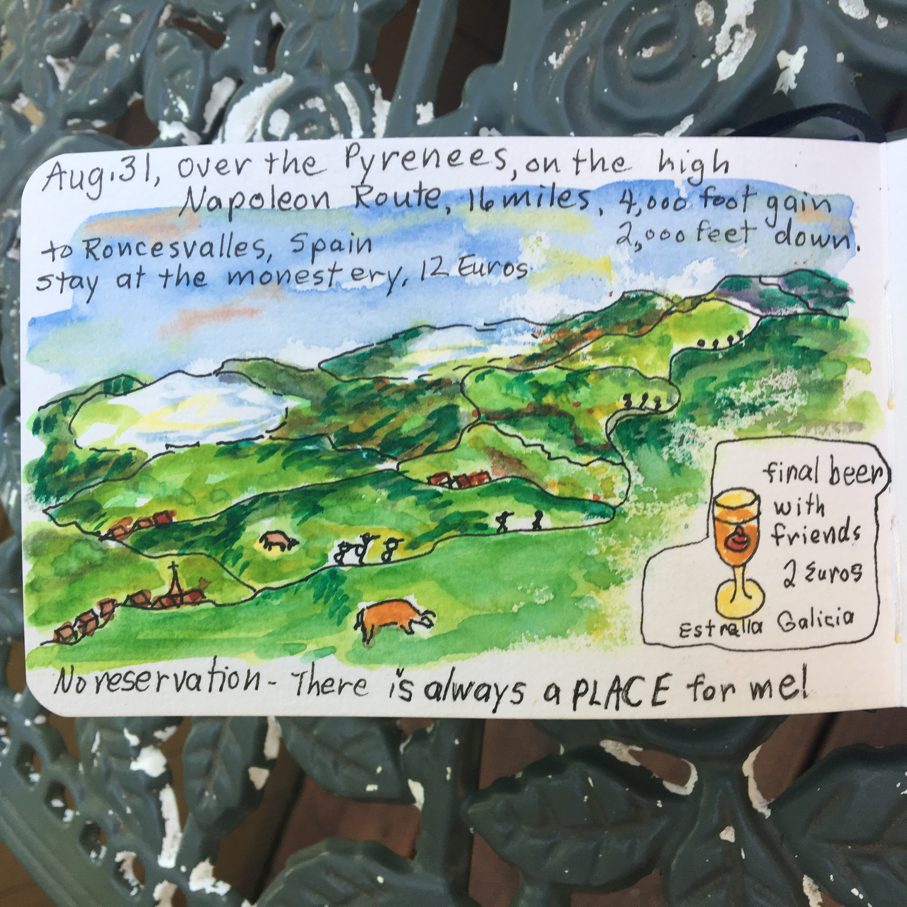 Aug. 31, over the Pyrenees, on the high
Napoleon Route, 16 miles, 4,000 foot gain
2,000 feet down.
to Roncesvalles, Spain
stay at the monestery, 12 Euros
final beer
with
friends
2 Euros
Estrella Galicia
No reservation - There is always a PLACE for me!